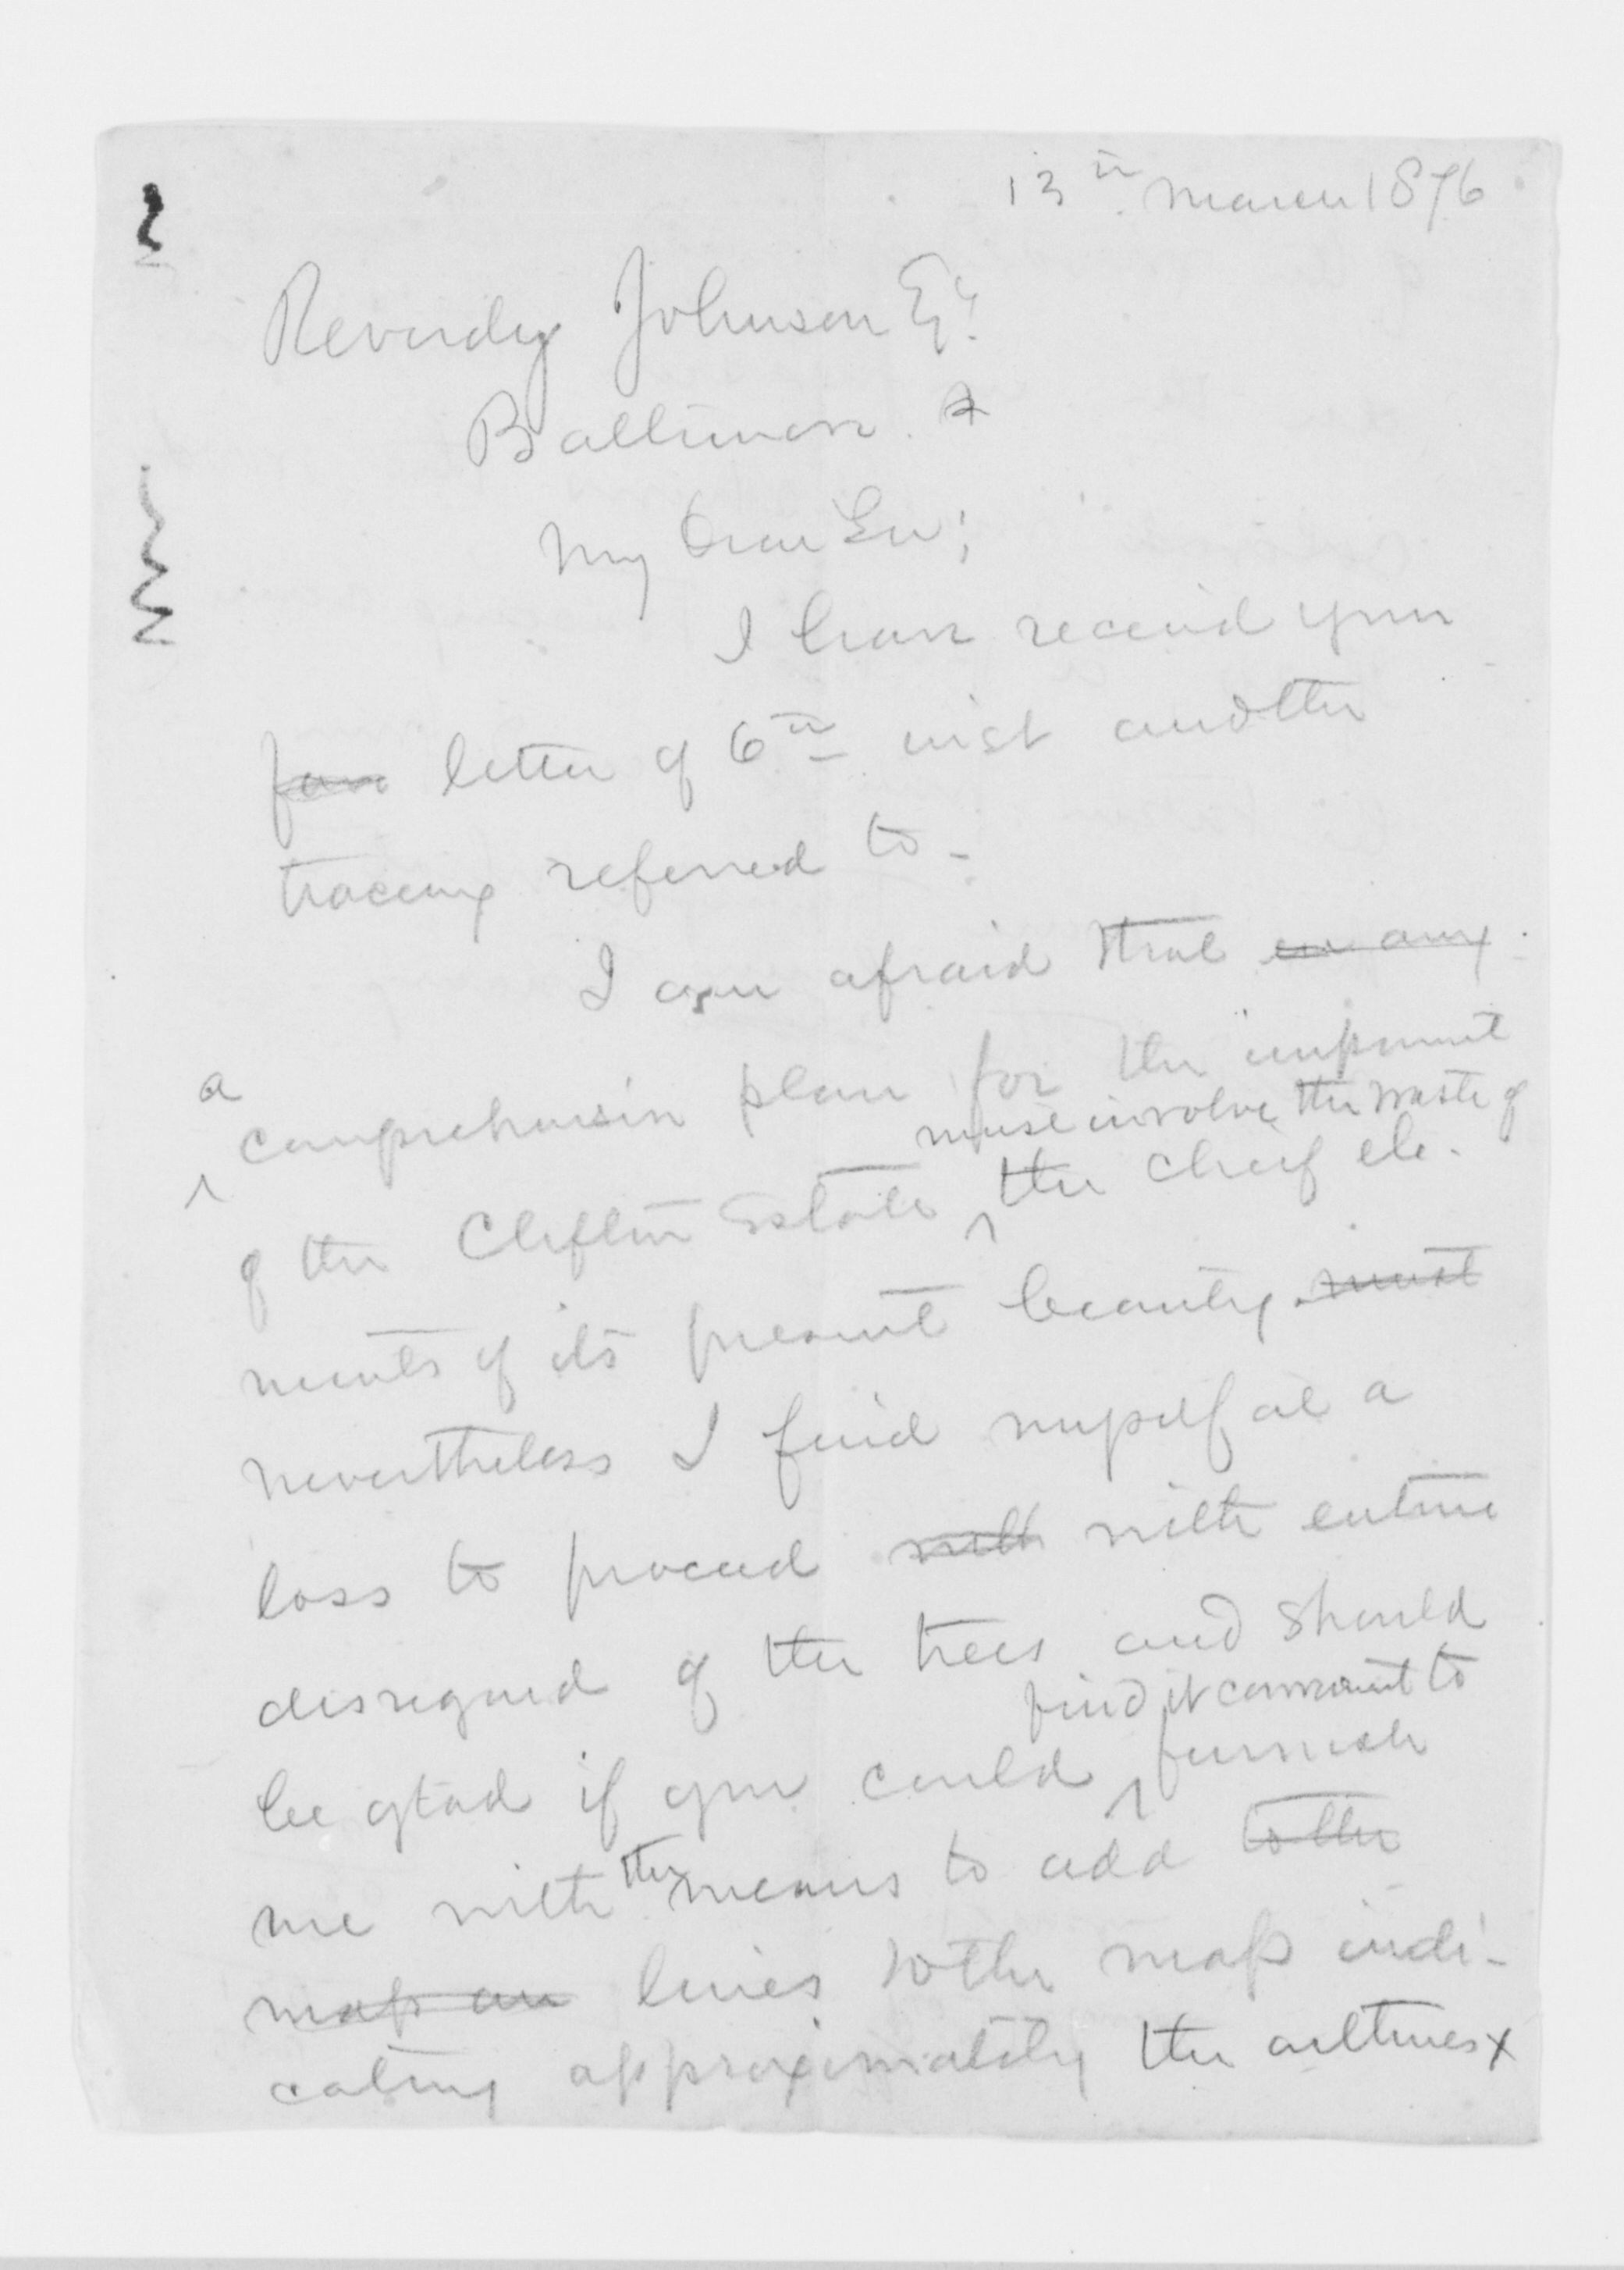 13th March 1876
Reverdy Johnson Esq.
Baltimore.
My Dear Sir;
I have received your
fav letter of 6th inst and the
tracing referred to.
I am afraid that in any
a comprehensive plan for the improvmnt
must involve the waste of
of the Clifton Estate the chief ele-
ments of its present beauty must
nevertheless I find myself at a
loss to proceed with with entire
disregard of the trees and should
find it convenient to
be glad if you could furnish
me with the means to add to the
map an lines to the map indi-
cating approximately the outlines x